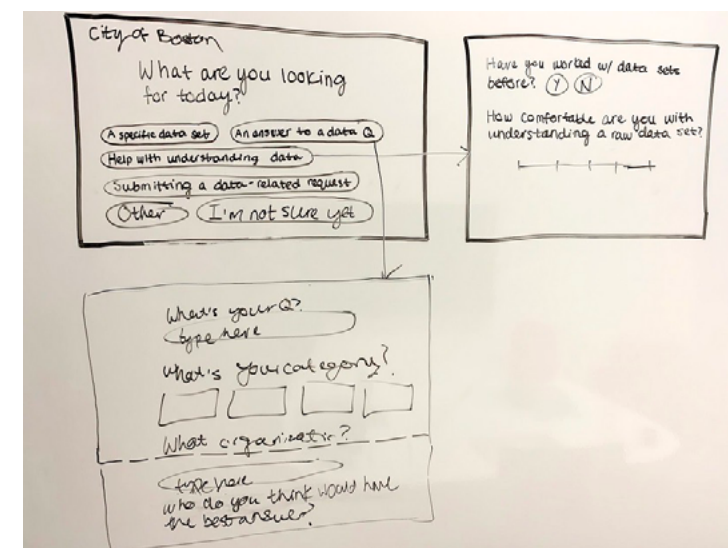 City of Boston
What are you looking
for today?
A specific data set
An answer to a data Q
Help with understanding data
Submitting a data-related request
Other
I'm not sure yet
Have you worked w/ data sets
before? Y N
How comfortable are you with
understanding a raw data set?
What's your Q?
type here
What's your category?
What organization?
type here
who do you think would have
the best answer?